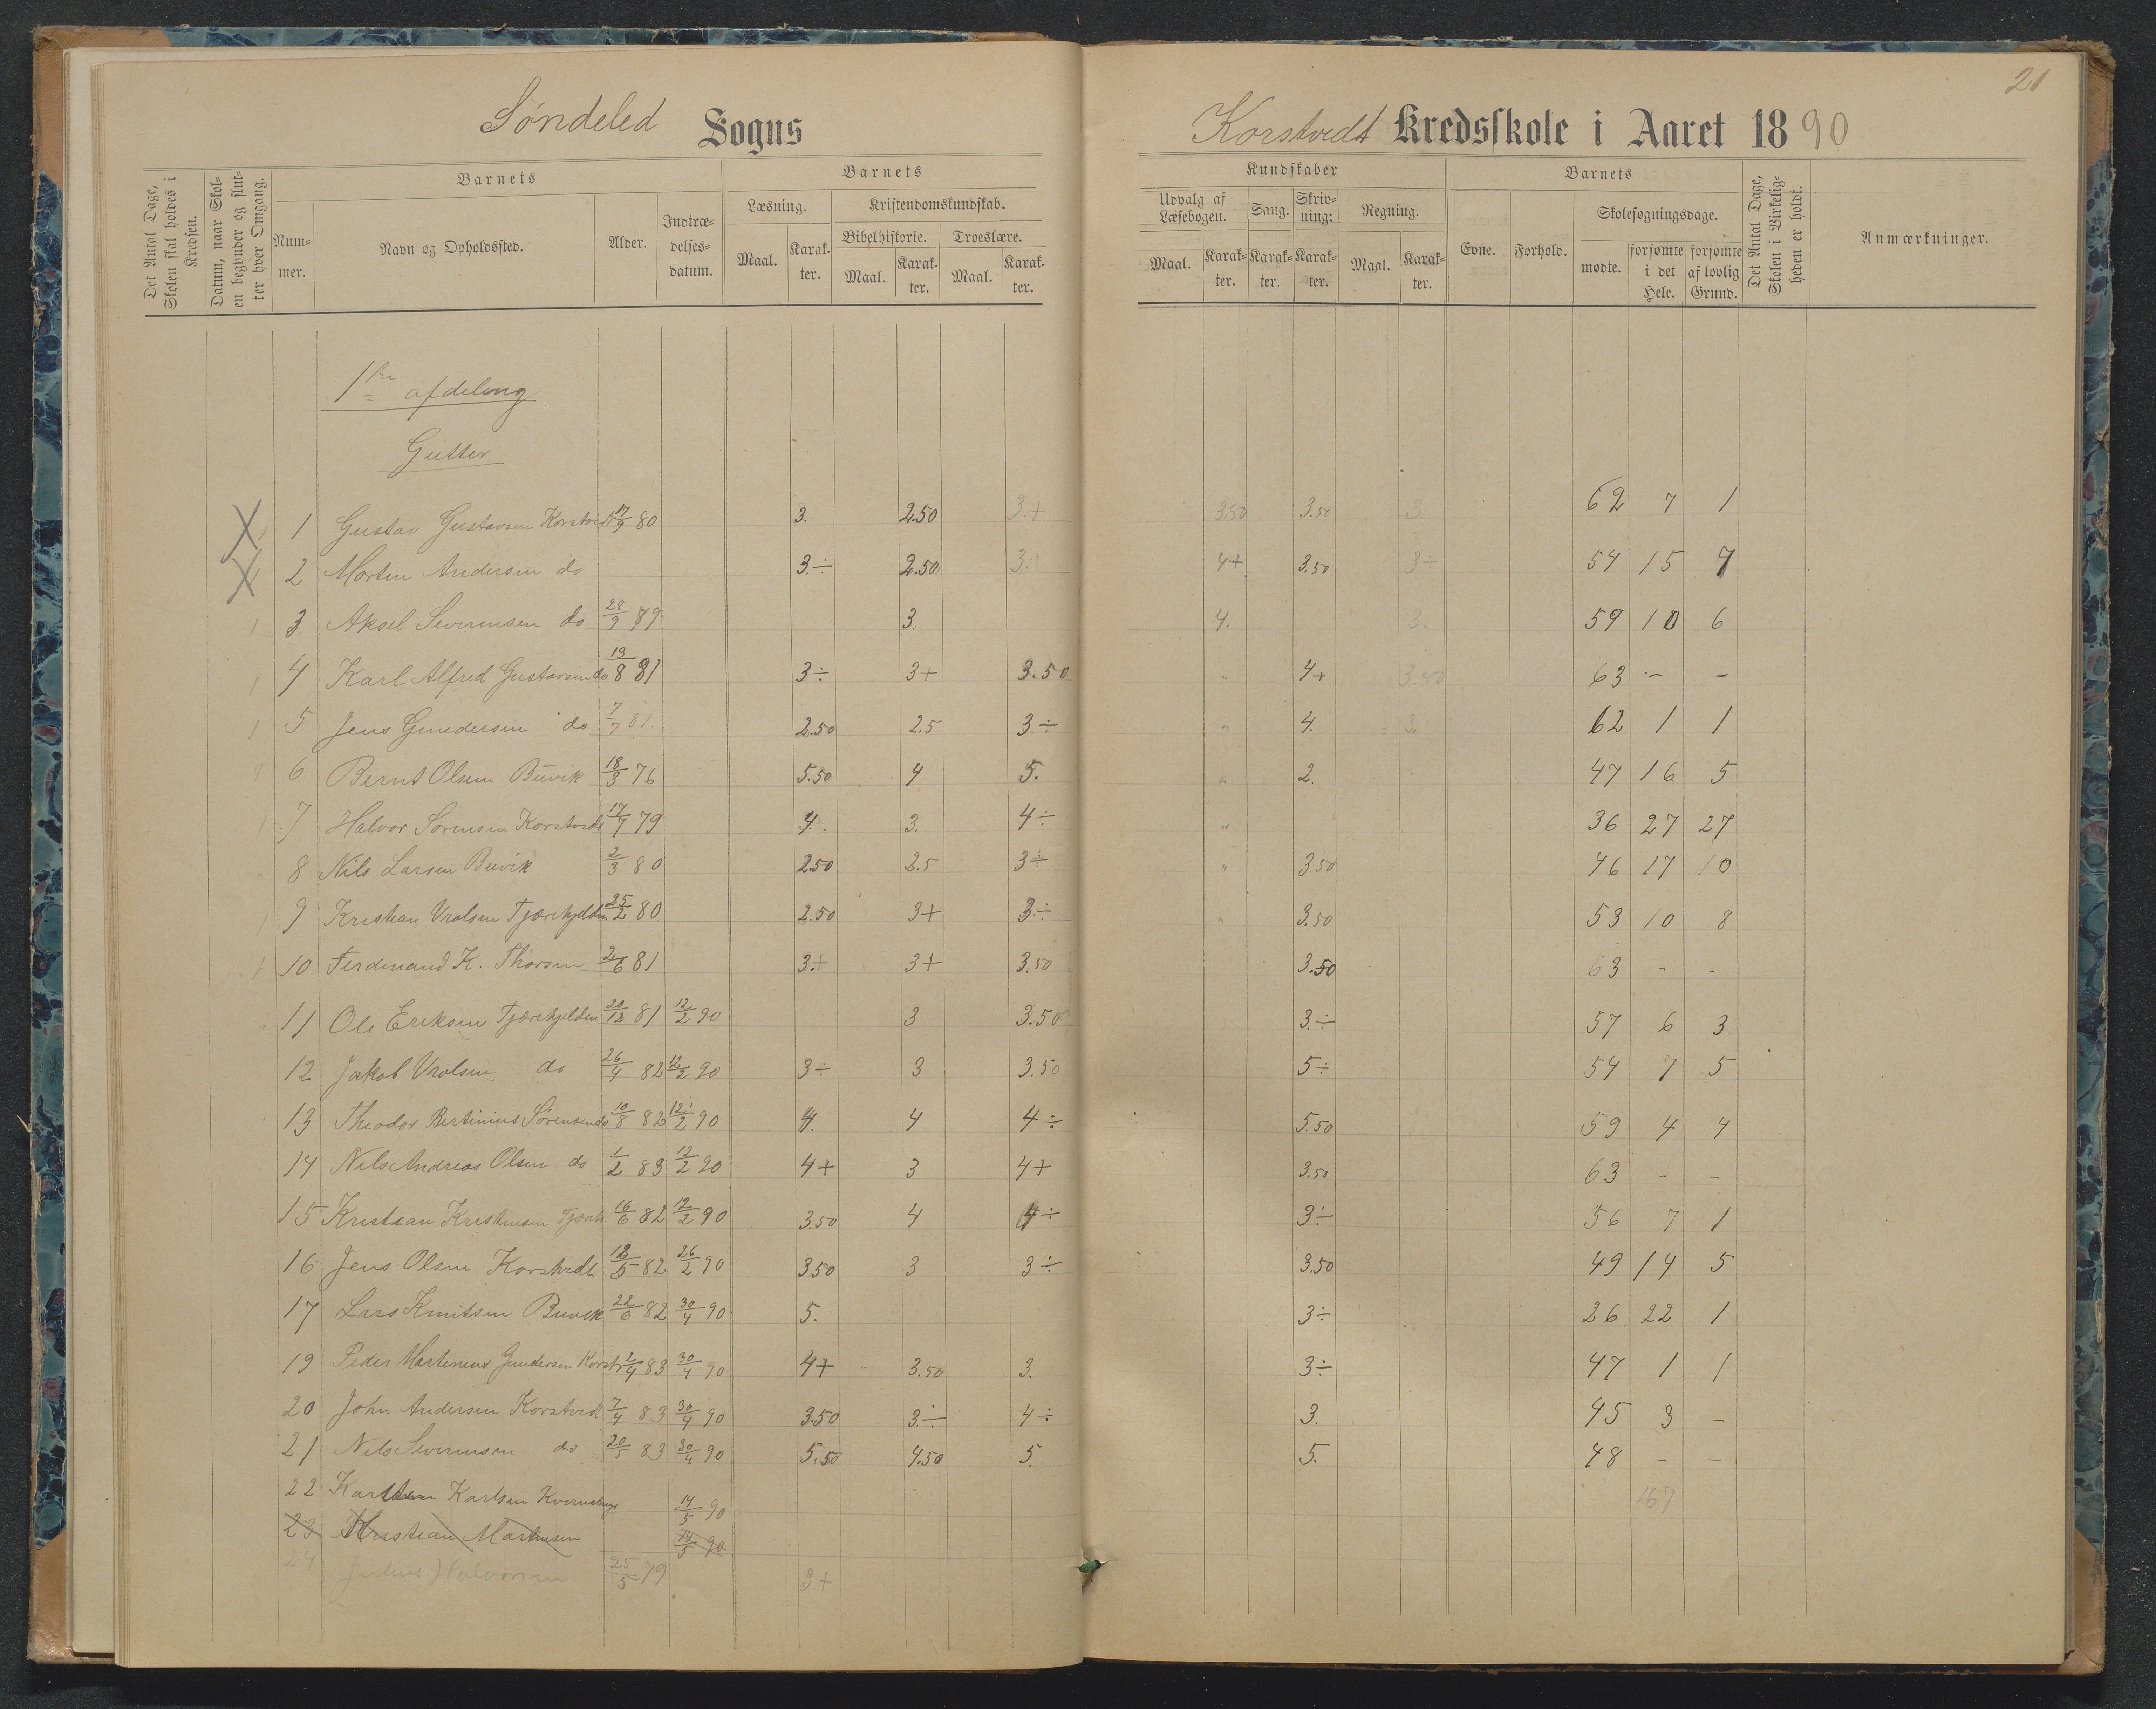 21
Søndeled Sogns
Korstvedt Kredsskole i Aaret 1890
Det Antal Dage, Skolen skal holdes i Kredsen.
Datum, naar Skolen begynder og slutter hver Omgang.
Nummer.
Barnets
Navn og Opholdssted.
Alder.
Indtrædelsesdatum.
Barnets
Læsning.
Maal.
Karakter.
Kristendomskundskab.
Bibelhistorie.
Maal.
Karakter.
Troeslære.
Maal.
Karakter.
Kundskaber
Udvalg af Læsebogen.
Maal.
Karakter.
Sang.
Karakter.
Skrivning:
Karakter.
Regning.
Maal.
Karakter.
Barnets
Evne.
Forhold.
Skolesøgningsdage.
mødte.
forsømte i det Hele.
forsømte af lovlig Grund.
Det Antal Dage, Skolen i Virkeligheden er holdt.
Anmærkninger.
1ste afdeling
Gutter
1 Gustav Gustavsen Korstvedt 17/9 80 3. 2.50 3.+ 3.50 3.50 3. 62 7 1
2 Morten Andersen do 3.÷ 2.50 3. 4+ 3.50 3÷ 54 15 7
3 Aksel Severinsen do 28/9 79 3 4. 3. 59 10 6
4 Karl Alfred Gustavsen do 13/8 81 3÷ 3+ 3.50 " 4+ 3.50 63 - -
5 Jens Gundersen do 7/7 81. 2.50 2.5 3÷ " 4. 3 62 1 1
6 Bernt Olsen Buvik 18/3 76 5.50 4 5. " 2. 47 16 5
7 Halvor Sørensen Korstvedt 17/7 79 4. 3. 4÷ " 36 27 27
8 Nils Larsen Buvik 2/3 80 2.50 2.5 3÷ " 3.50 46 17 10
9 Kristian Vrolsen Tjærekjelden 25/2 80 2.50 3+ 3÷ " 3.50 53 10 8
10 Ferdinand K. Thorsen 2/6 81 3.+ 3+ 3.50 3.50 63 - -
11 Ole Eriksen Tjærekjelden 20/12 81 12/2 90 3 3.50 3.÷ 57 6 3
12 Jakob Vrolsen do 26/4 82 12/2 90 3÷ 3 3.50 5÷ 54 7 5
13 Theodor Bertinius Sørensen do 10/8 82 12/2 90 4. 4 4÷ 5.50 59 4 4
14 Nils Andreas Olsen do 1/2 83 12/2 90 4+ 3 4+ 3.50 63 - -
15 Kristian Kristensen Tjærek. 16/6 82 12/2 90 3.50 4 4÷ 3÷ 56 7 1
16 Jens Olsen Korstvedt 12/5 82 26/2 90 3.50 3 3÷ 3.50 49 14 5
17 Lars Knutsen Buvik 22/6 82 30/4 90 5. 3÷ 26 22 1
19 Peder Martinius Gundersen Korstv 2/4 83 30/4 90 4+ 3.50 3. 3÷ 47 1 1
20 John Andersen Korstvedt 7/4 83 30/4 90 3.50 3.÷ 4÷ 3. 45 3 -
21 Nils Severinsen do 20/5 83 30/4 90 5.50 4.50 5. 5. 48 - -
22 Karsten Karlsen 14/5 90 167
23 Kristian Martinsen 14/5 90
24 Julius Halvorsen 25/5 79 3+